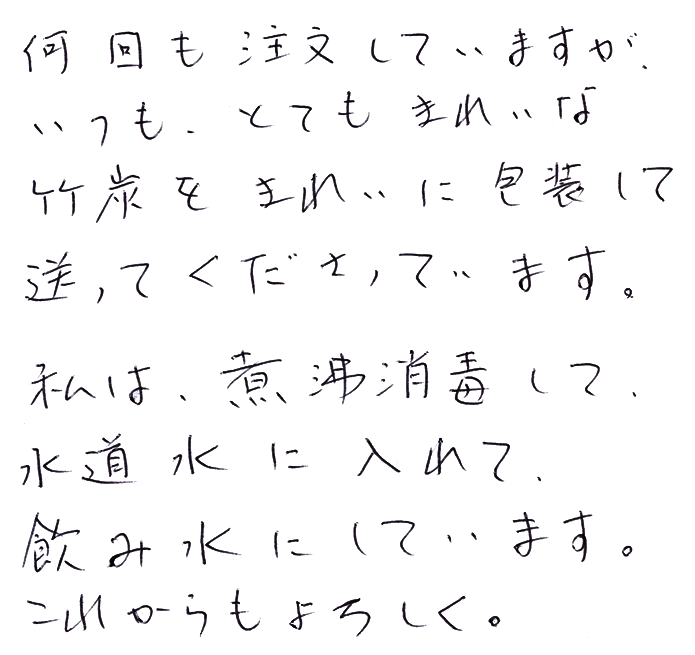 何回も注文していますが、
いつも、とてもきれいな
竹炭をきれいに包装して
送ってくださっています。
私は、煮沸消毒して、
水道水に入れて、
飲み水にしています。
これからもよろしく。